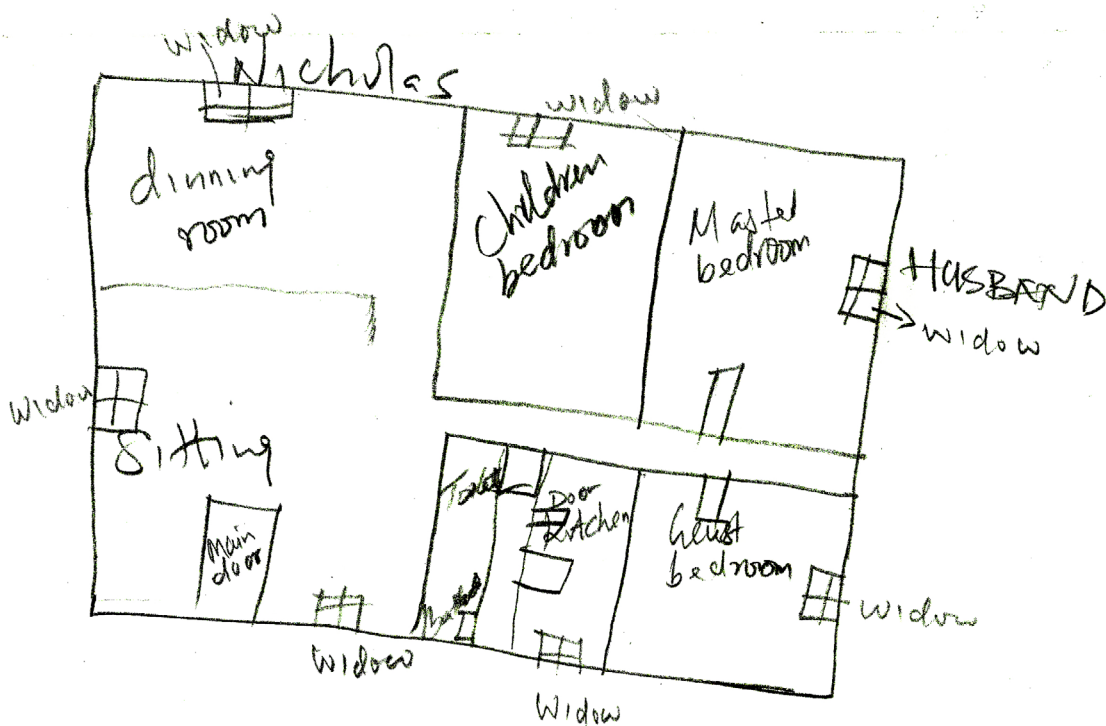 widow
Nicholas
widow
dinning
room
Children
bedroom
Master
bedroom
HUSBAND
widow
widow
Sitting
Main
door
Toilet
Door
Kitchen
Geust
bedroom
widow
widow
widow